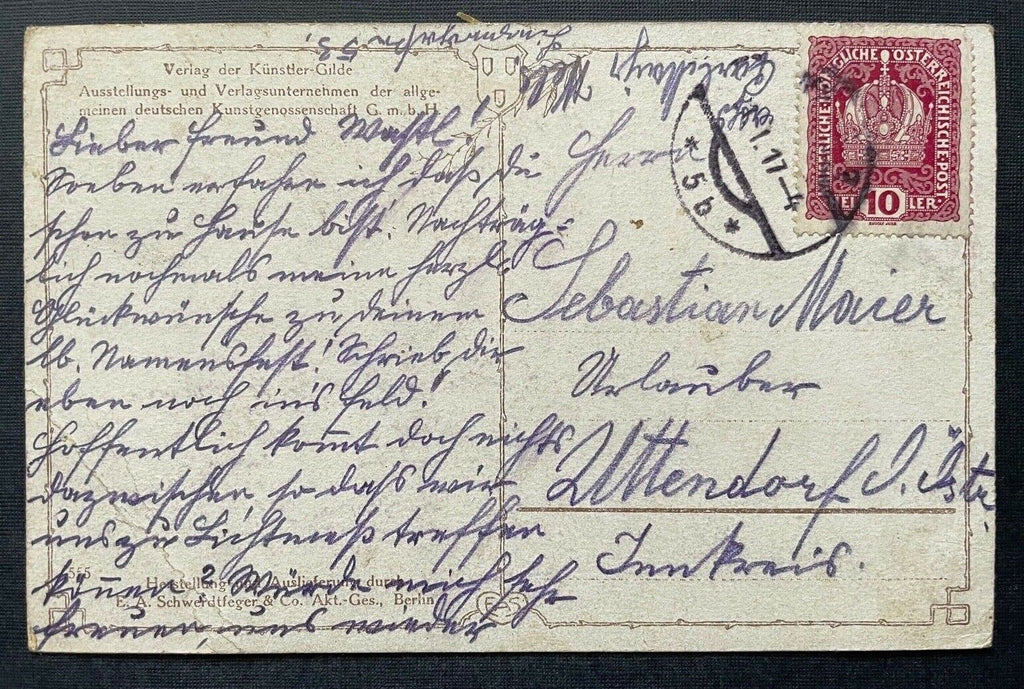 Verlag der Künstler-Gilde
Ausstellungs- und Verlagsunternehmen der allge-
meinen deutschen Kunstgenossenschaft G. m. b. H
Lieber Freund Wastl!
Soeben erfahre ich daß du
schon zu Hause bist. Nachträg-
lich nochmals meine herzl.
Glückwünsche zu deinem
lb. Namensfest! Schrieb dir
eben noch ins Feld.
Hoffentlich kommt doch nichts
dazwischen, so daß wir
uns zu Lichtmeß treffen
können? Würde mich sehr
freuen, uns wieder
555
Herstellung und Auslieferung durch
E. A. Schwerdtfeger & Co. Akt.-Ges., Berlin
53.
KAISERLICHE KÖNIGLICHE ÖSTERREICHISCHE POST
10
HELLER
I. 17-4
* 5b *
Herrn
Sebastian Maier
Urlauber
Uttendorf O. Östr.
Innkreis.